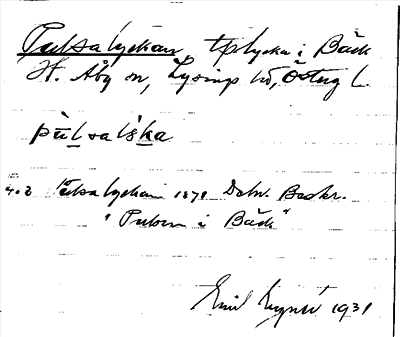 Pulsalyckan, tplycka i Bäck
H. Åby sn, Lysings hd, Östergl.
pùlsalÿka
Pulsalyckan 1878 Dahn. Beskr.
"Pulsen i Bäck"
Emil 1931